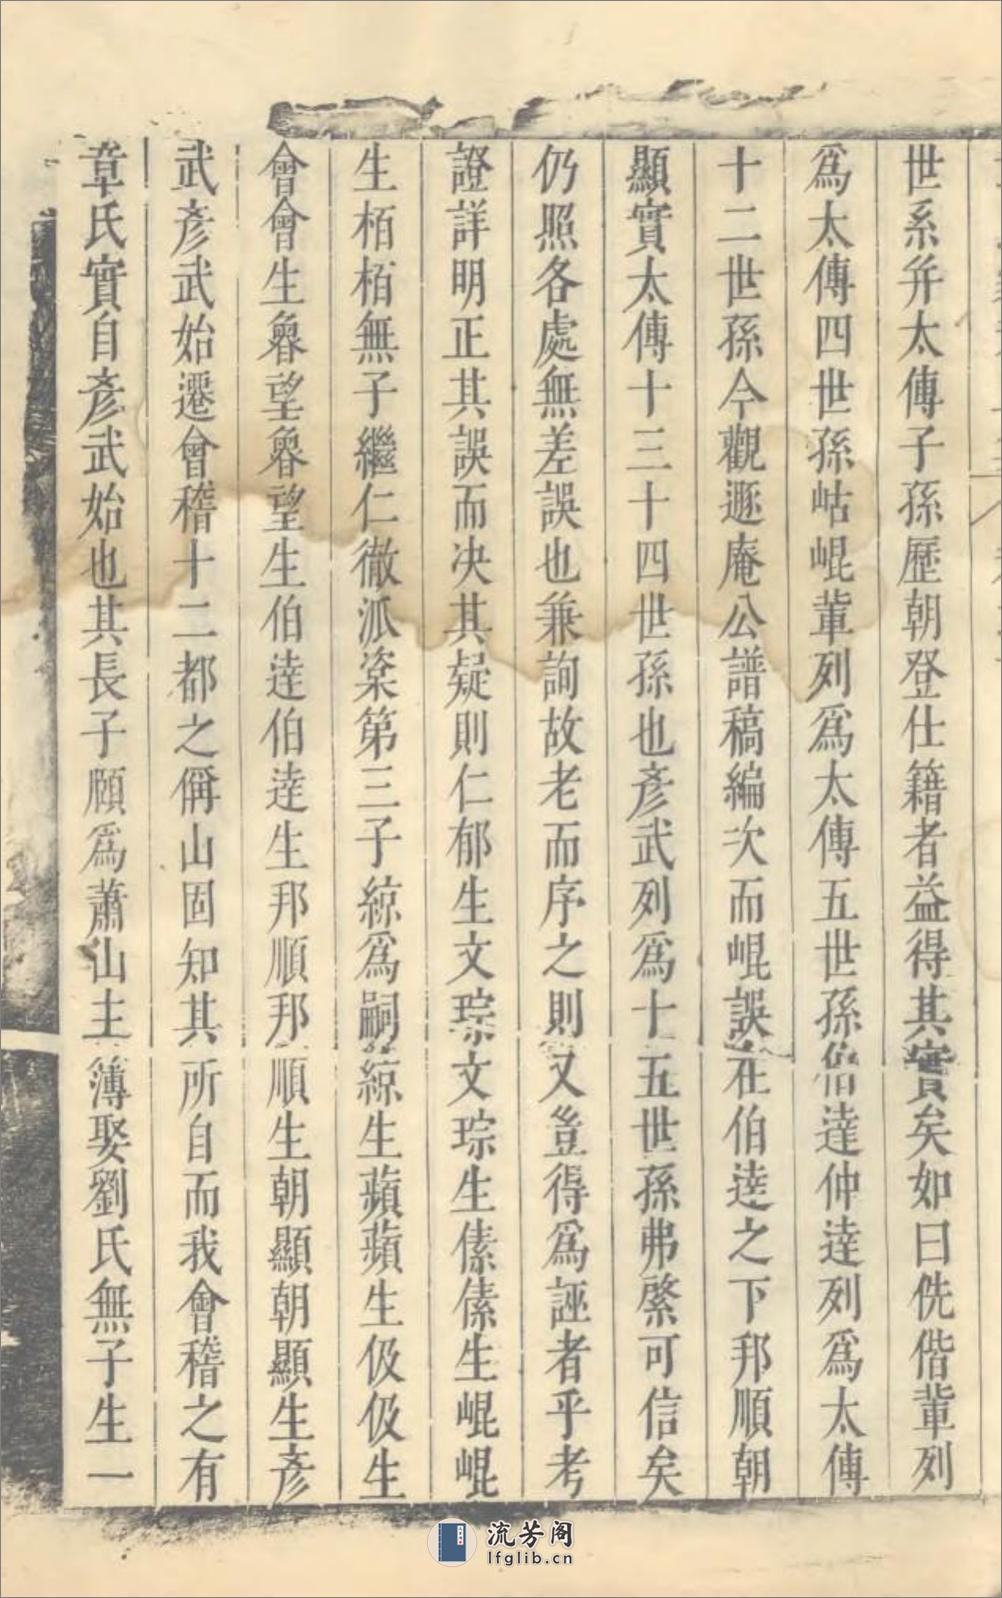 世系并太傳子孫歷朝登仕籍者益得其實矣如曰侁偕輩列
爲太傳四世孫岵崐輩列爲太傳五世孫伯達仲逹列爲太傳
十二世孫今觀遯庵公譜稿編次而崐誤在伯逹之下邦順朝
顯實太傳十三十四世孫也彥武列爲十五世孫弗綮可信矣
仍照各處無差誤也兼詢故老而序之則又豈得爲誣者乎考
證詳明正其誤而决其疑則仁郁生文琮文琮生傃傃生崐崐
生栢栢無子繼仁徹派楶第三子綡爲嗣綡生蘋蘋生伋伋生
會會生魯望魯望生伯逹伯逹生邦順邦順生朝顯朝顯生彥
武彥武始遷會稽十二都之偁山固知其所自而我會稽之有
章氏實自彥武始也其長子願爲蕭山主簿娶劉氏無子生一
流芳阁
lfglib.cn